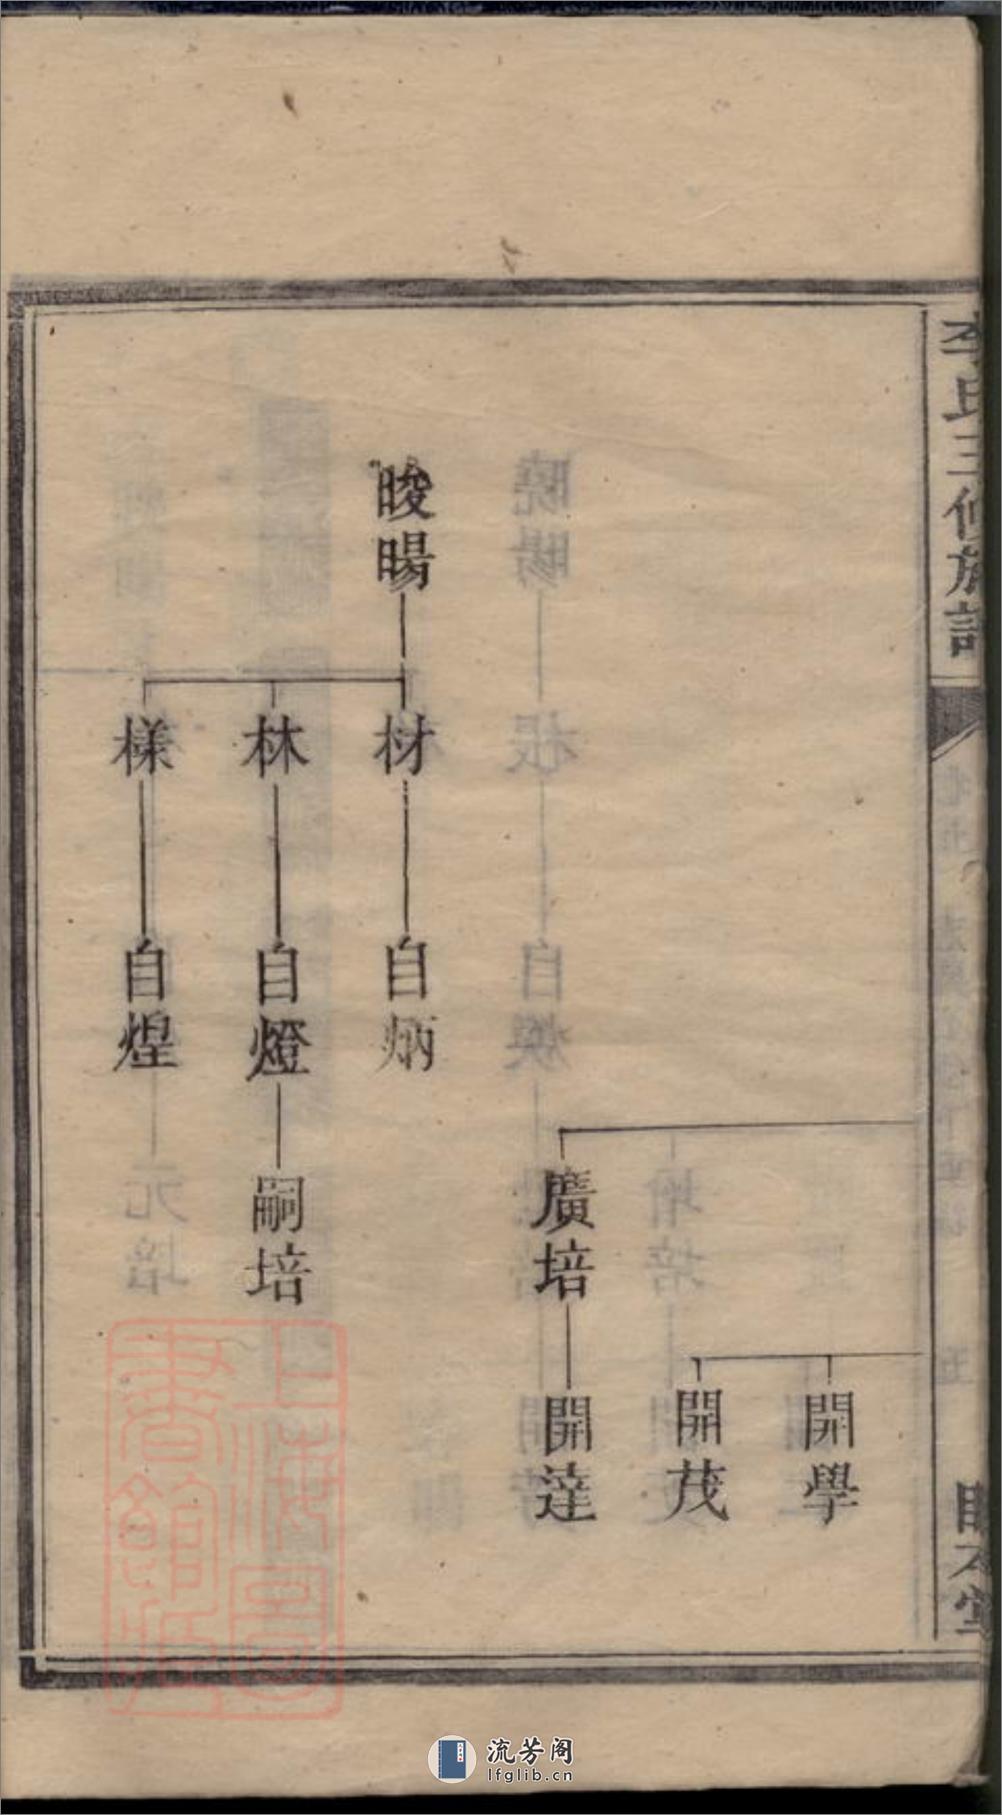 李氏三修族譜
開學
開茂
廣培
開達
晙暘
材
自炳
林
自燈
嗣培
樣
自煌
上海圖
書館藏
流芳阁
lfglib.cn